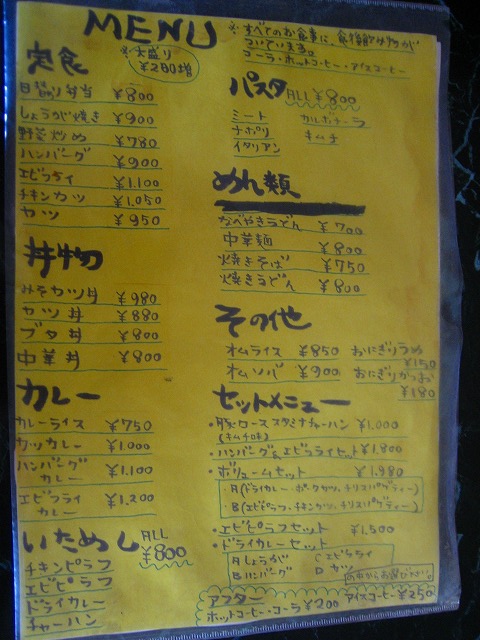 MENU
※すべてのお食事に、食後飲み物が
ついています。
コーラ・ホットコーヒー・アイスコーヒー
定食
※大盛り
¥200増
日替り弁当 ¥800
しょうが焼き ¥900
野菜炒め ¥780
ハンバーグ ¥900
エビフライ ¥1.100
チキンカツ ¥1.050
カツ ¥950
丼物
みそカツ丼 ¥980
カツ丼 ¥880
ブタ丼 ¥800
中華丼 ¥800
カレー
カレーライス ¥750
カツカレー ¥1.000
ハンバーグ
カレー ¥1.100
エビフライ
カレー ¥1.200
いためし ALL ¥800
チキンピラフ
エビピラフ
ドライカレー
チャーハン
パスタ ALL ¥800
ミート カルボナーラ
ナポリ キムチ
イタリアン
めん類
なべやきうどん ¥700
中華麺 ¥800
焼きそば ¥750
焼きうどん ¥800
その他
オムライス ¥850 おにぎりうめ
¥150
オムソバ ¥900 おにぎりかつお
¥180
セットメニュー
・豚ロース スタミナチャーハン ¥1.000
(キムチ味)
・ハンバーグ&エビフライセット ¥1.800
・ボリュームセット ¥1.980
・A(ドライカレー・ポークカツ・チリスパゲティー)
・B(エビピラフ・チキンカツ・チリスパゲティー)
・エビピラフセット ¥1.500
・ドライカレーセット
Aしょうが Cエビフライ
Bハンバーグ Dカツ
の中からお選び下さい。
アフター
ホットコーヒー・コーラ ¥200 アイスコーヒー ¥250